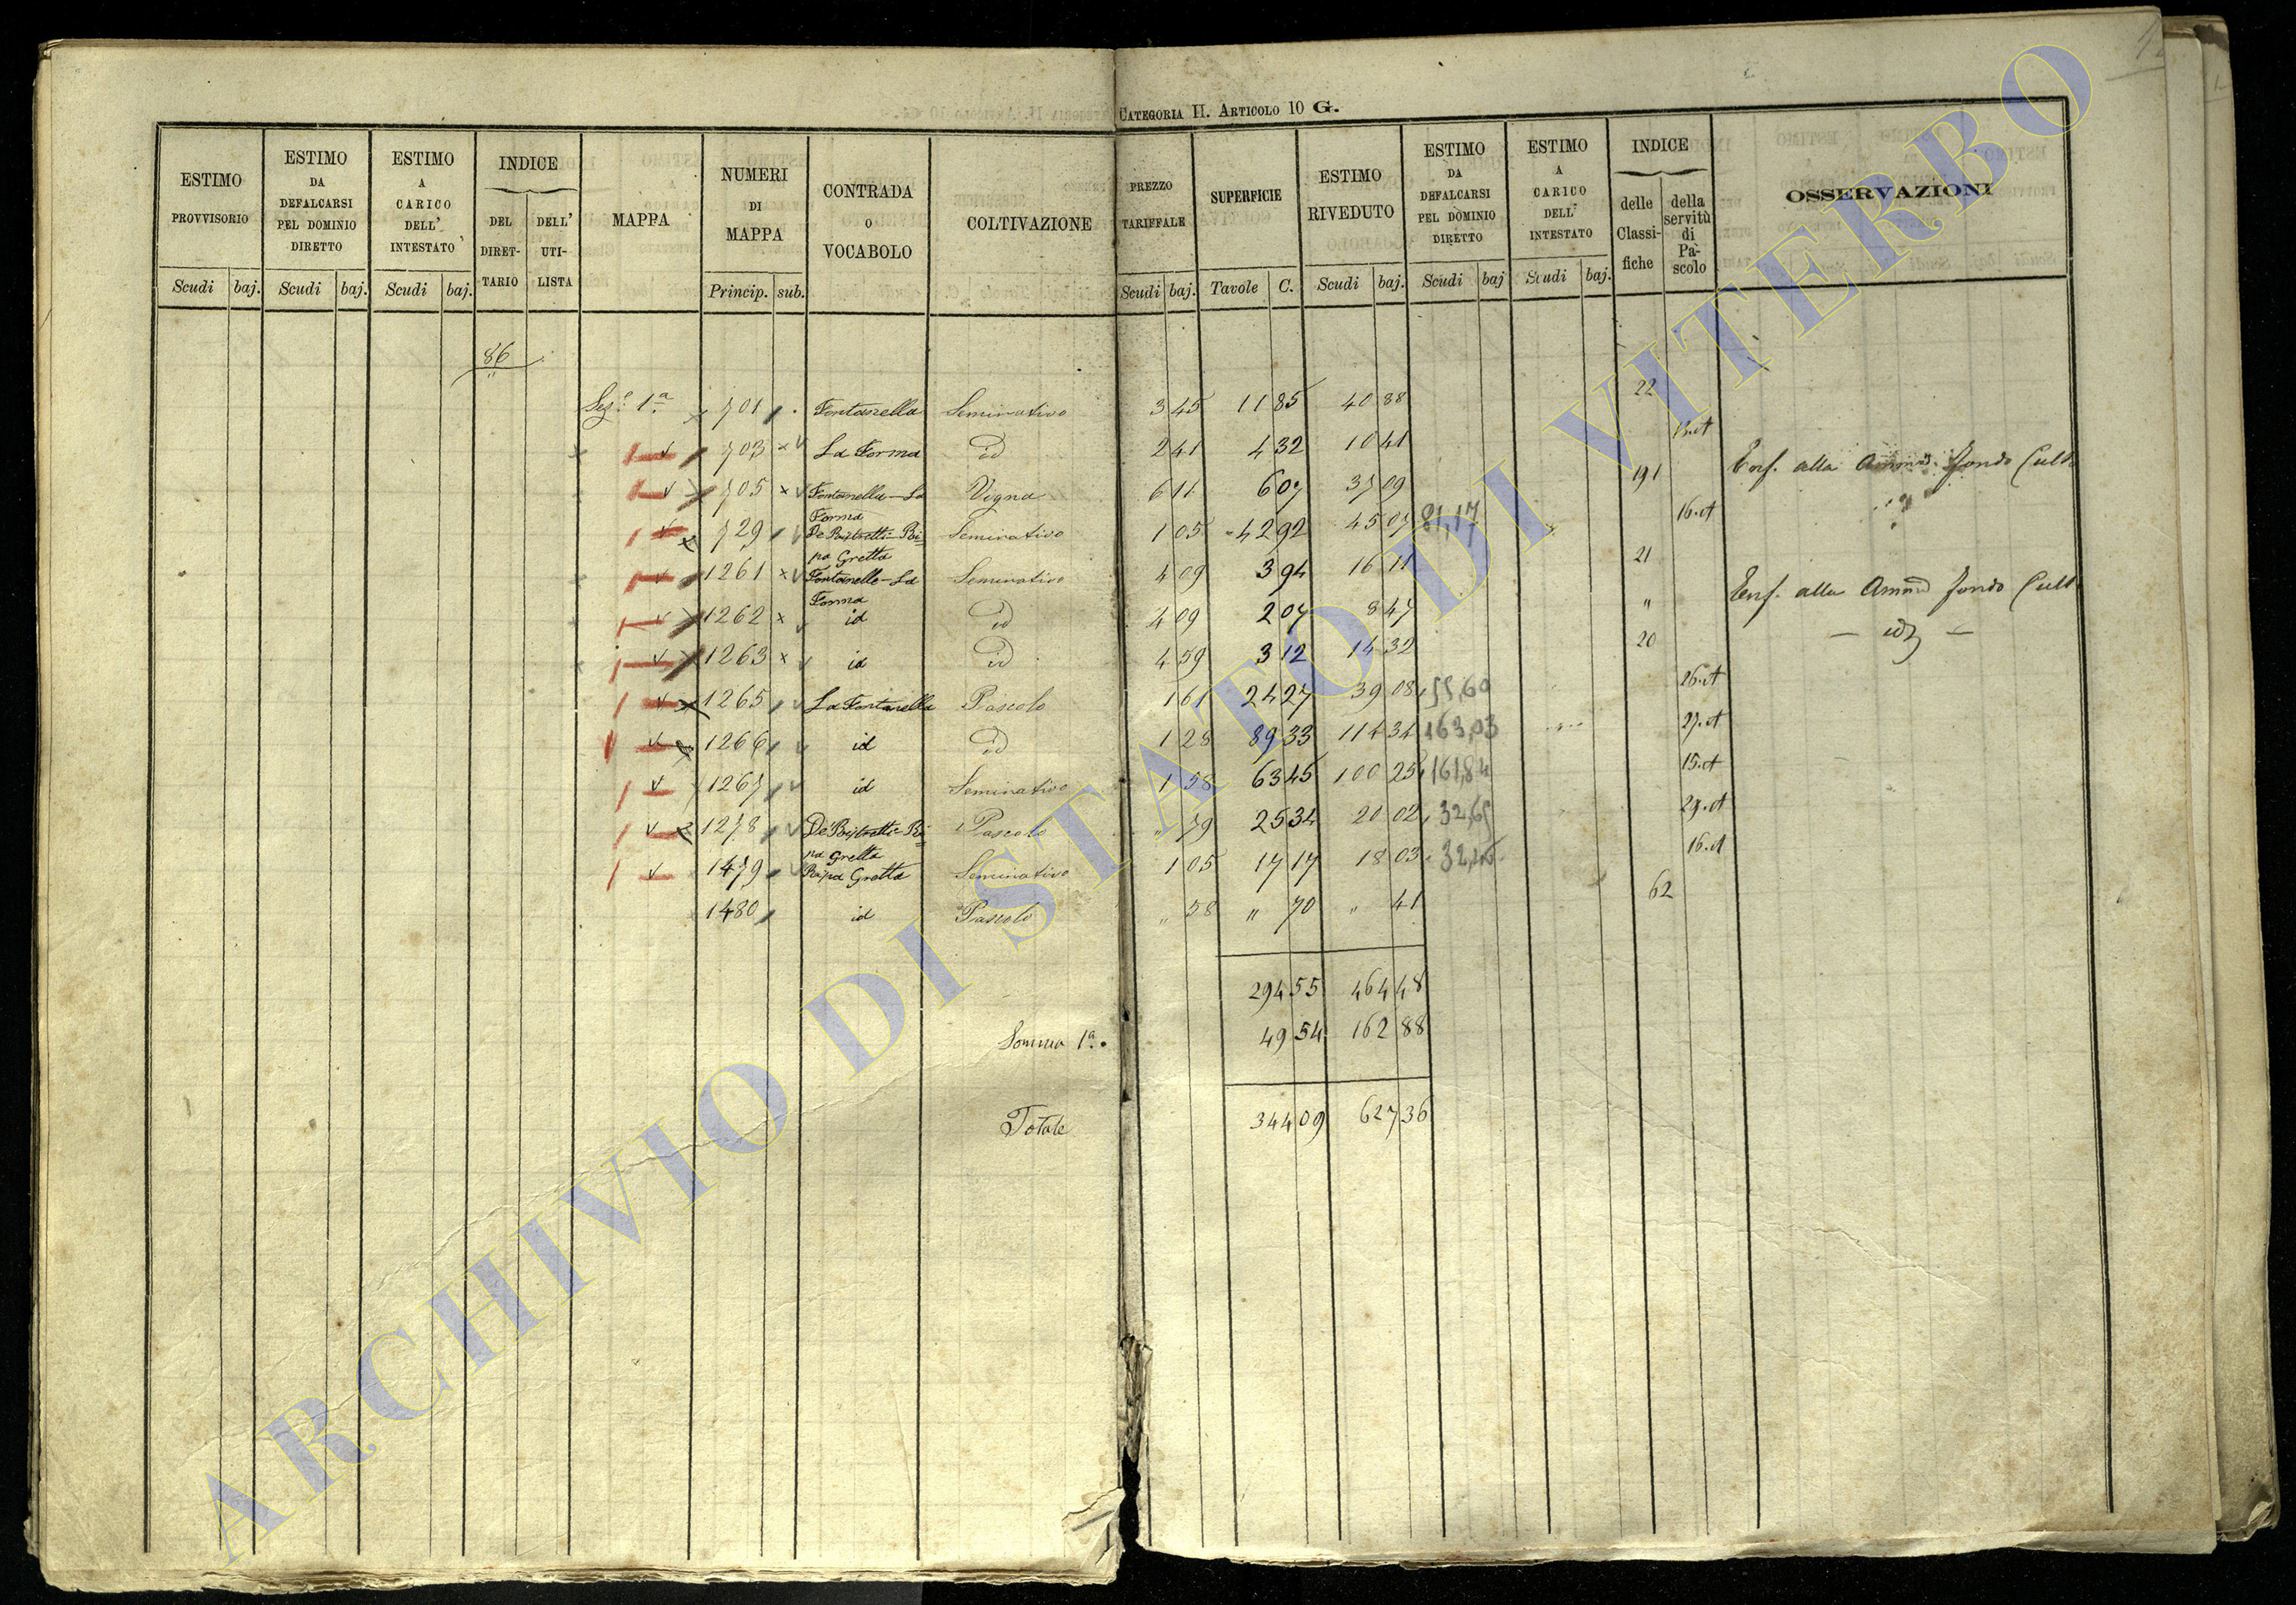 CATEGORIA II. ARTICOLO 10 G.
ESTIMO PROVVISORIO Scudi baj.
ESTIMO DA DEFALCARSI PEL DOMINIO DIRETTO Scudi baj.
ESTIMO A CARICO DELL' INTESTATO Scudi baj.
INDICE DEL DIRETTARIO DELL' UTILISTA
MAPPA
NUMERI DI MAPPA Princip. sub.
CONTRADA O VOCABOLO
COLTIVAZIONE
PREZZO TARIFFALE Scudi baj.
SUPERFICIE Tavole C.
ESTIMO RIVEDUTO Scudi baj.
ESTIMO DA DEFALCARSI PEL DOMINIO DIRETTO Scudi baj
ESTIMO A CARICO DELL' INTESTATO Scudi baj.
INDICE delle Classifiche della servitù di Pascolo
OSSERVAZIONI
86
Sez.e 1a 701 Fontanella Seminativo 3 45 11 85 40 88 22
703 La Forma id 2 41 4 32 10 41 13.A
705 Fontanella-La Forma Vigna 6 11 6 07 37 09 191 Enf. alla Fondo Cult
729 Ripa Gretta Seminativo 1 05 42 92 45 07 81,17 16.A
1261 Fontanella-La Forma Seminativo 4 09 3 94 16 11 21
1262 id id 4 09 2 07 8 47 " Enf. alla fondo Cult
1263 id id 4 59 3 12 14 32 20 - id -
1265 La Fontanella Pascolo 1 61 24 27 39 08 55,60 26.A
1266 id id 1 28 89 33 114 34 163,03 27.A
1267 id Seminativo 1 58 63 45 100 25 161,84 15.A
1278 Ripa Gretta Pascolo " 79 25 34 20 02 32,65 29.A
1479 Ripa Gretta Seminativo 1 05 17 17 18 03 16.A
1480 id Pascolo " 58 " 70 " 41 62
294 55 464 48
Somma 1a. 49 54 162 88
Totale 344 09 627 36
ARCHIVIO DI STATO DI VITERBO